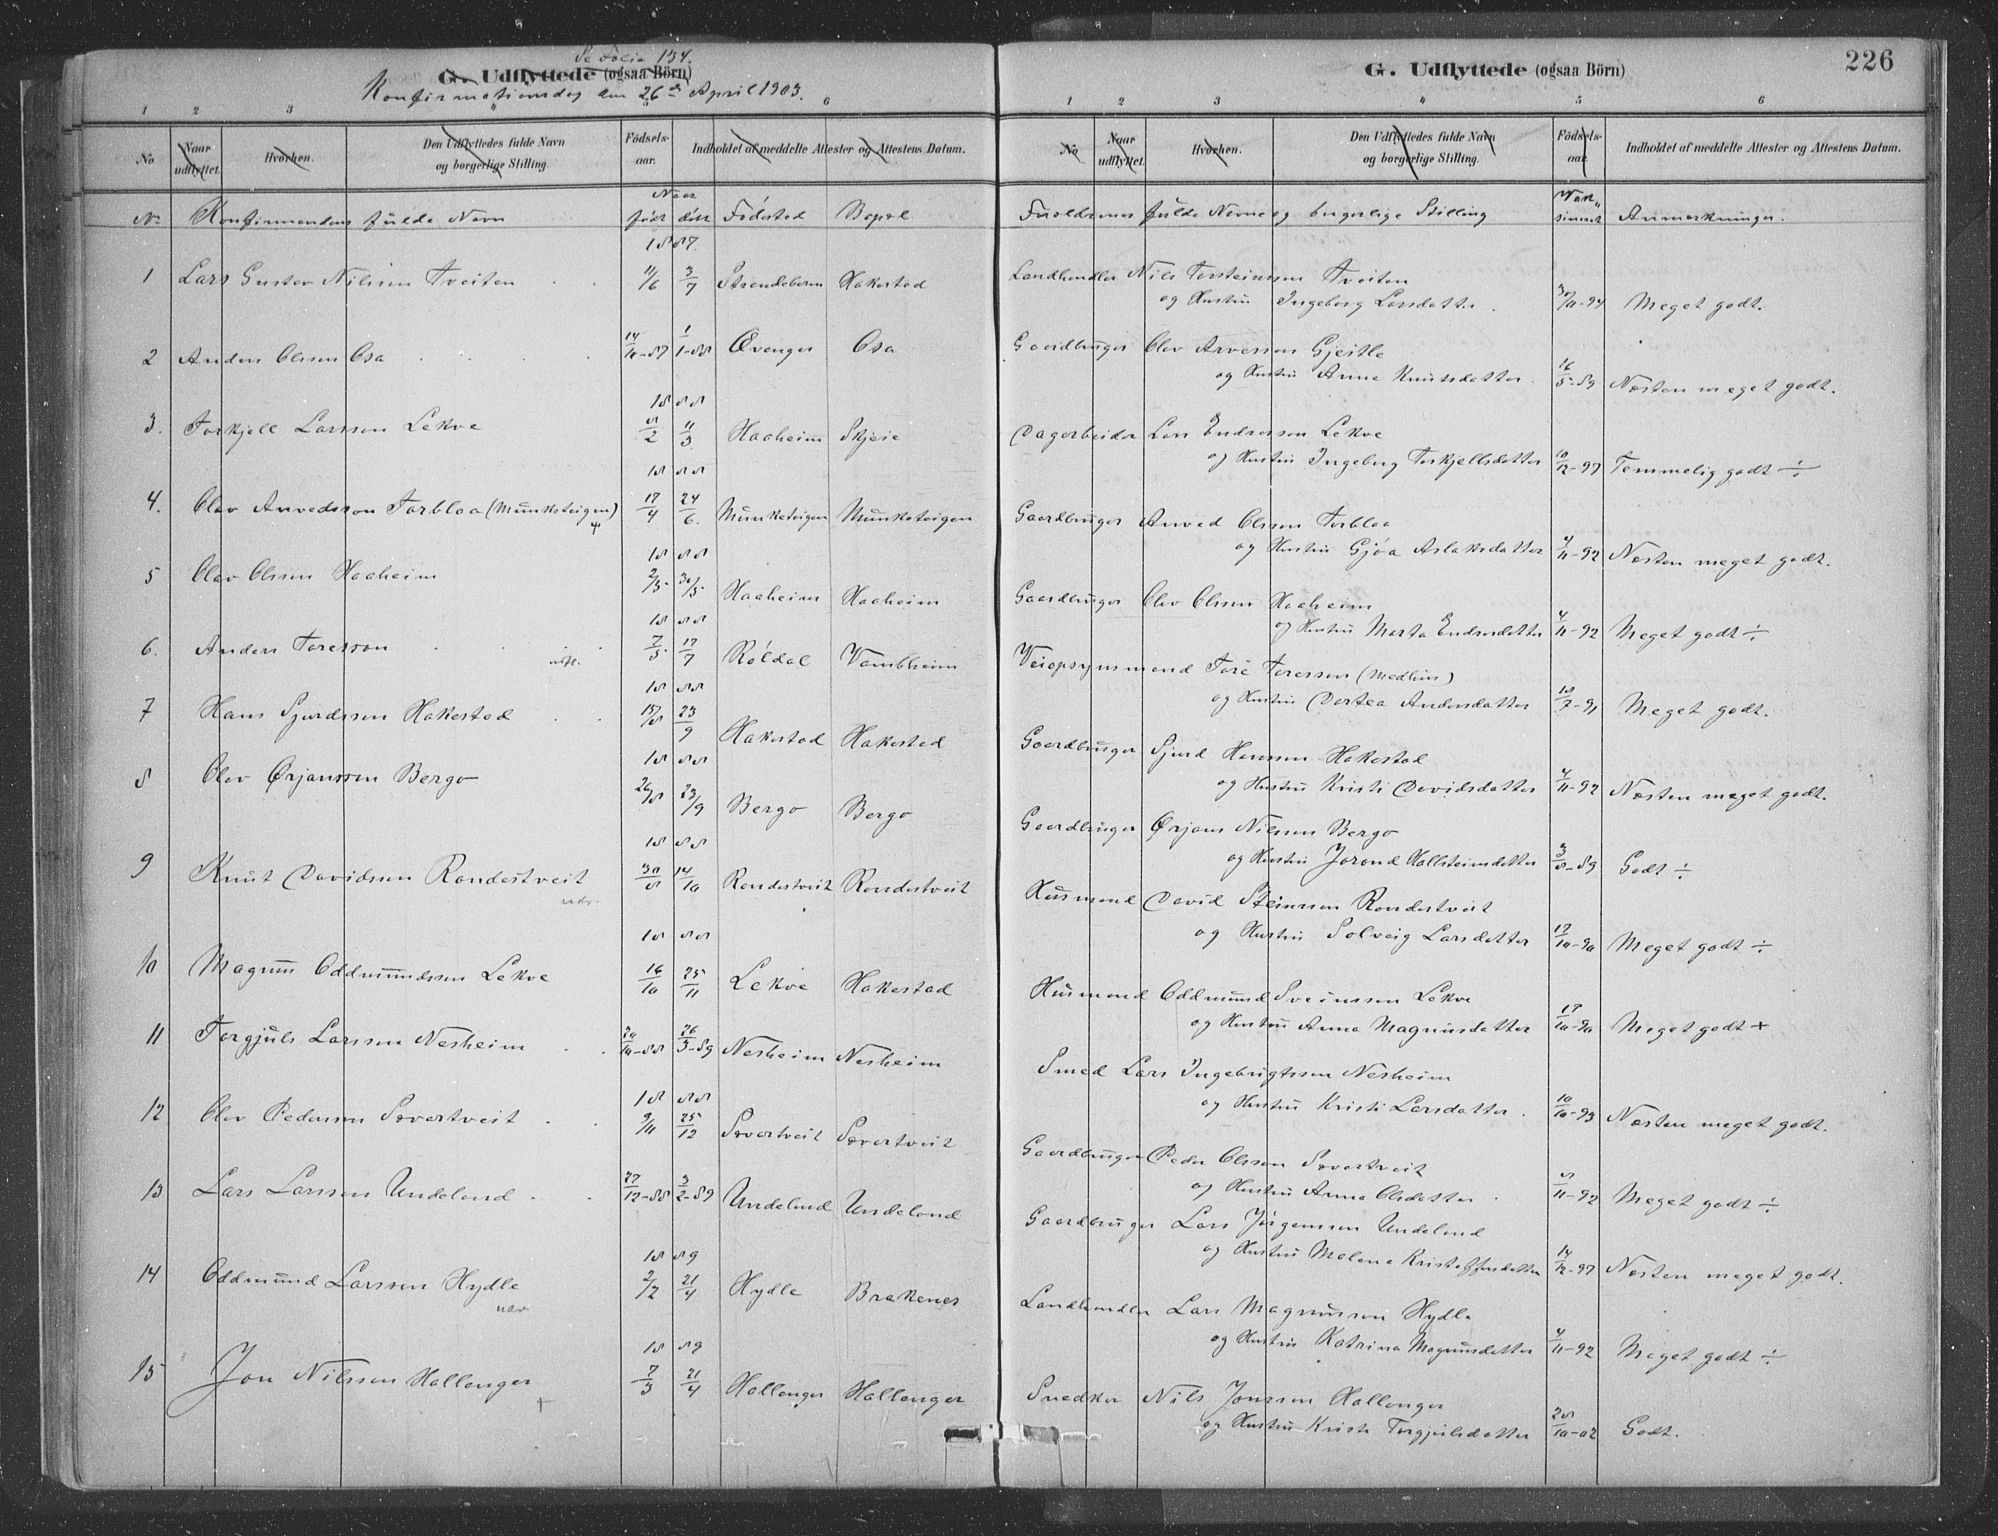 Se Folio 134.
G. Udflyttede (ogsaa Börn)
Konfirmationsdag den 26de April 1903.
1 2 3 4 5 6
No
Naar udflyttet.
Hvorhen.
Den Udflyttedes fulde Navn og borgerlige Stilling.
Födsels-aar.
Indholdet af meddelte Attester og Attestens Datum.
No Konfirmandens fulde Navn Naar født døbt Fødested Bopæl
1 Lars Gustav Nilssen Tveiten 1887. 11/6 3/7 Strandebarm Hakestad
2 Anders Olssen Osa 14/11-87 1/1-88 Øvanger Osa
3. Torkjell Larssen Lekve 1888 8/2 11/3 Haaheim Skjeie
4. Olav Arvedsson Torbloa (Munketeigen) 1888 17/4 24/6. Munketeigen Munketeigen
5 Olav Olssen Haaheim 1888 2/5 30/5 Haaheim Haaheim
6. Anders Toresson 1888 7/5 17/7 Røldal Vambheim
7 Hans Sjurdssen Hakestad 1888 15/8 23/9 Hakestad Hakestad
8 Olav Ørjanssen Bergo 1888 26/8 23/9 Bergo Bergo
9 Knut Davidsen Rondestveit 1888 30/8 14/10 Rondestveit Rondestveit
10 Magnus Oddmundssen Lekve 1888 16/10 25/11 Lekve Hakestad
11 Torgjuls Larssen Nesheim 20/10-88 26/3-89 Nesheim Nesheim
12 Olav Pedersen Sværtveit 1888 9/11 25/12 Sværtveit Sværtveit
13 Lars Larssen Undeland 27/12-88 3/2-89 Undeland Undeland
14 Oddmund Larssen Hydle 1889 2/2 21/4 Hydle Brakenes
15 Jon Nilssen Hallanger 1889 7/3 21/4 Hallanger Hallanger
226
G. Udflyttede (ogsaa Börn)
1 2 3 4 5 6
No
Naar udflyttet.
Hvorhen.
Den Udflyttedes fulde Navn og borgerlige Stilling.
Födsels-aar.
Indholdet af meddelte Attester og Attestens Datum.
Forældrenes fulde Navne og borgerlige Stilling Vaccineret Anmærkninger.
Landhandler Nils Torsteinssen Tveiten
og Hustru Ingeborg Larsdatter 30/11-94 Meget godt.
Gaardbruger Olav Arvessen Gjeitle
og Hustru Anna Knutsdatter. 16/5-89 Næsten meget godt.
Dagarbeider Lars Endressen Lekve
og Hustru Ingeborg Torkjellsdatter 10/12-97 Temmelig godt ÷
Gaardbruger Arved Olssen Torbloa
og Hustru Gjøa Aslaksdatter 4/11-92 Næsten meget godt.
Gaardbruger Olav Olssen Haaheim
og Hustru Marta Endresdatter 4/11-92 Meget godt ÷
Veiopsynsmand Tore Toressen (Medhus)
og Hustru Dortea Andersdatter 18/7-91 Meget godt.
Gaardbruger Sjurd Hanssen Hakestad
og Hustru Kristi Davidsdatter 4/11-92 Næsten meget godt.
Gaardbruger Ørjans Nilssen Bergo
og Hustru Jorond Hallsteinsdatter 3/8-89 Godt ÷
Husmand David Steinssen Rondestveit
og Hustru Solveig Larsdatter 17/10-90 Meget godt ÷
Husmand Oddmund Sveinssen Lekve
og Hustru Anna Magnusdatter 17/10-90 Meget godt +
Smed Lars Ingebrigtssen Nesheim
og Hustru Kristi Larsdatter. 10/10-93 Næsten meget godt.
Gaardbruger Peder Olssen Sværtveit
og Hustru Anna Olsdatter 5/11-92 Meget godt ÷
Gaardbruger Lars Jørgenssen Undeland
og Hustru Malena Kristoffersdatter 14/12-97 Næsten meget godt.
Landhandler Lars Magnusson Hydle
og Hustru Katrina Magnusdatter 4/11-92 Meget godt ÷
Snedker Nils Jonssen Hallanger
og Hustru Kristi Torgjulsdatter 28/10-02 Godt.